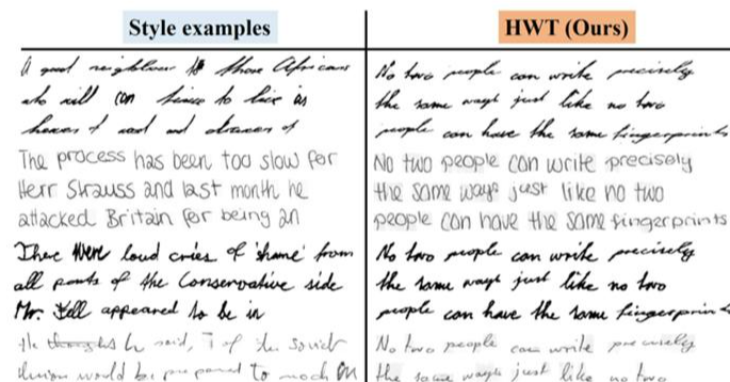 Style examples
HWT (Ours)
A good neighbour to those Africans
who will con tinue to live in
houses of mud and
The process has been too slow for
Herr Strauss and last month he
attacked Britain for being an
There were loud cries of 'shame' from
all parts of the Conservative side
Mr. Fell appeared to be in
He thoughts he said, of the soviet
would be prepared to much on
No two people can write precisely
the same ways just like no two
people can have the same fingerprints
No two people can write precisely
the same ways just like no two
people can have the same fingerprints
No two people can write precisely
the same ways just like no two
people can have the same fingerprints
No two people can write precisely
the same ways just like no two